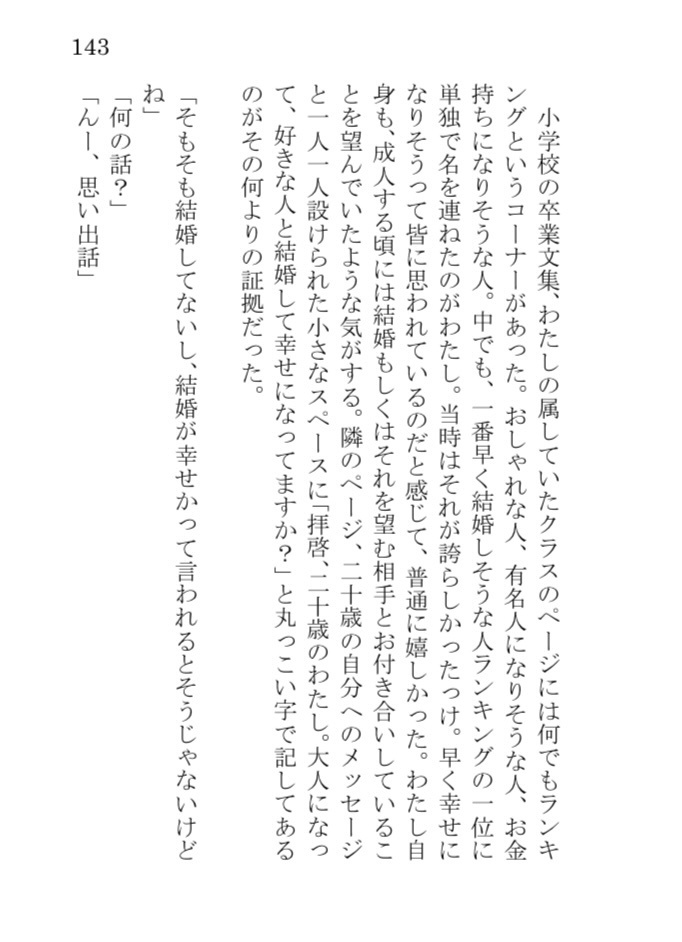 143
　小学校の卒業文集、わたしの属していたクラスのページには何でもランキ
ングというコーナーがあった。おしゃれな人、有名人になりそうな人、お金
持ちになりそうな人。中でも、一番早く結婚しそうな人ランキングの一位に
単独で名を連ねたのがわたし。当時はそれが誇らしかったっけ。早く幸せに
なりそうって皆に思われているのだと感じて、普通に嬉しかった。わたし自
身も、成人する頃には結婚もしくはそれを望む相手とお付き合いしているこ
とを望んでいたような気がする。隣のページ、二十歳の自分へのメッセージ
と一人一人設けられた小さなスペースに「拝啓、二十歳のわたし。大人になっ
て、好きな人と結婚して幸せになってますか？」と丸っこい字で記してある
のがその何よりの証拠だった。
「そもそも結婚してないし、結婚が幸せかって言われるとそうじゃないけど
ね」
「何の話？」
「んー、思い出話」